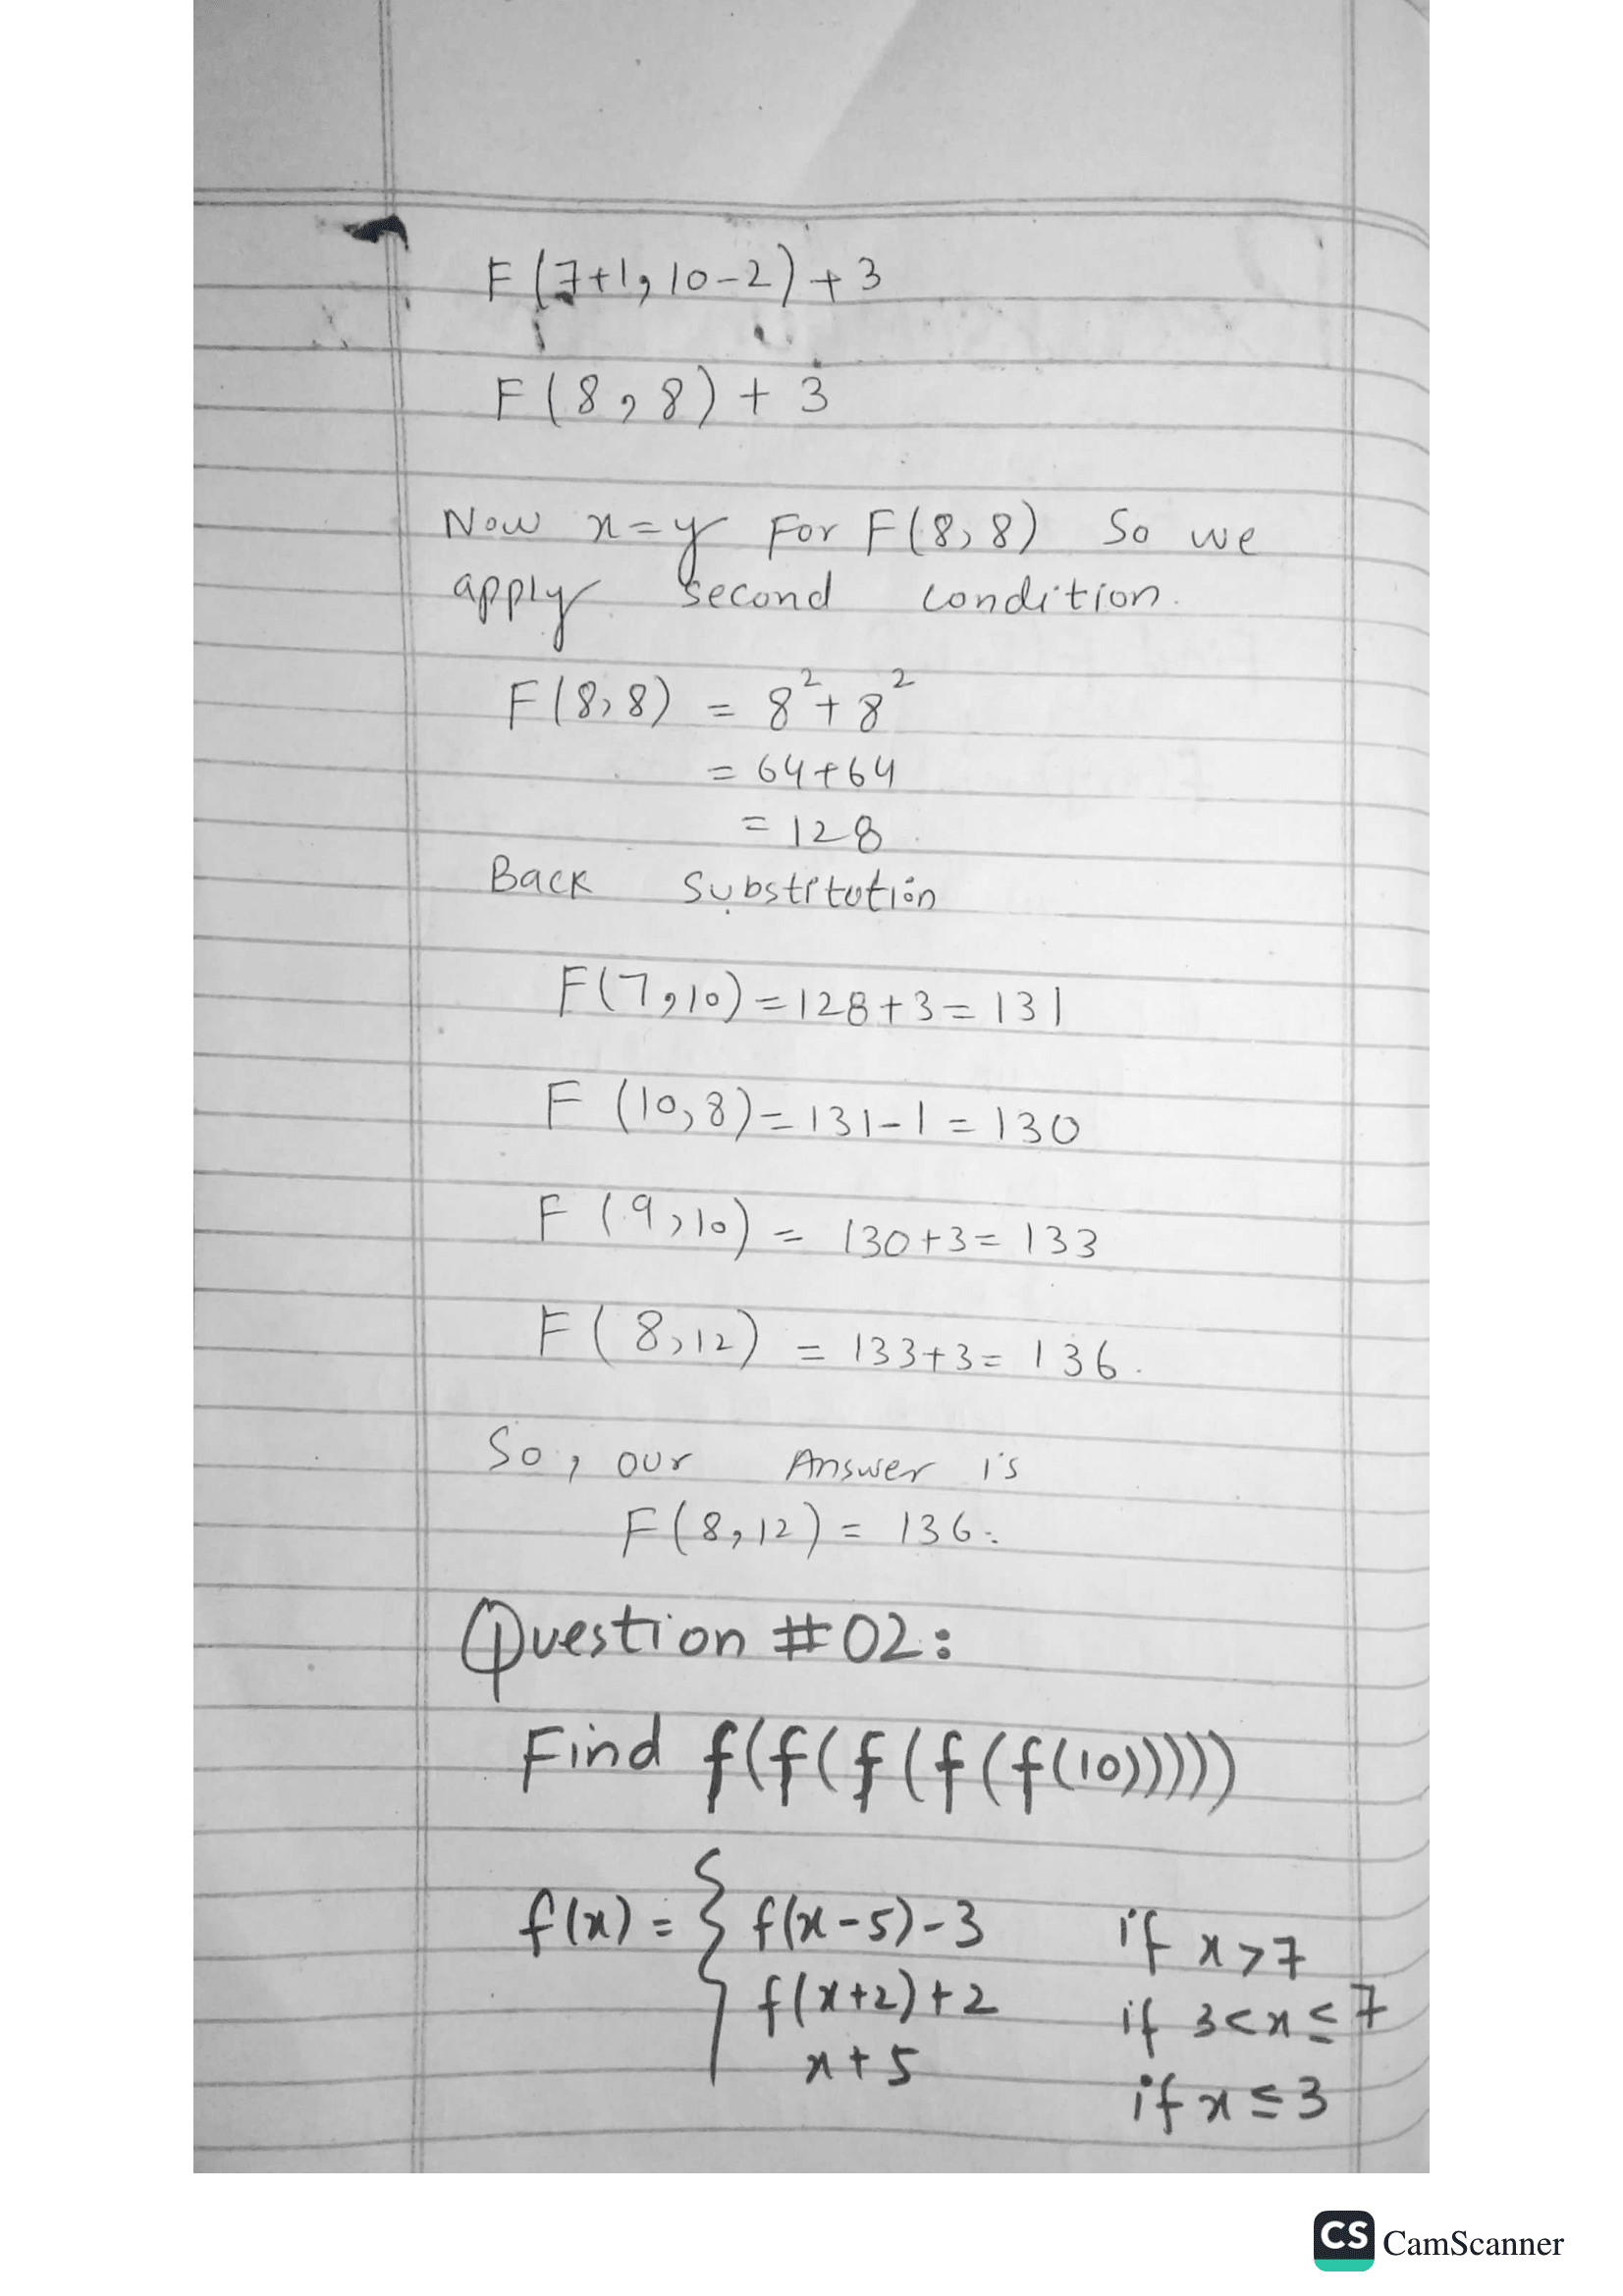 F(7+1, 10-2)+3
F(8,8)+3
Now x=y For F(8,8) So we
apply second condition.
F(8,8) = 8²+8²
= 64+64
= 128
Back substitution
F(7,10)=128+3=131
F(10,8)=131-1=130
F(9,10) = 130+3=133
F(8,12) = 133+3=136.
So, our Answer is
F(8,12) = 136.
Question #02:
Find f(f(f(f(f(10)))))
f(x) = { f(x-5)-3 if x>7
f(x+2)+2 if 3<x≤7
x+5 if x≤3
CS CamScanner